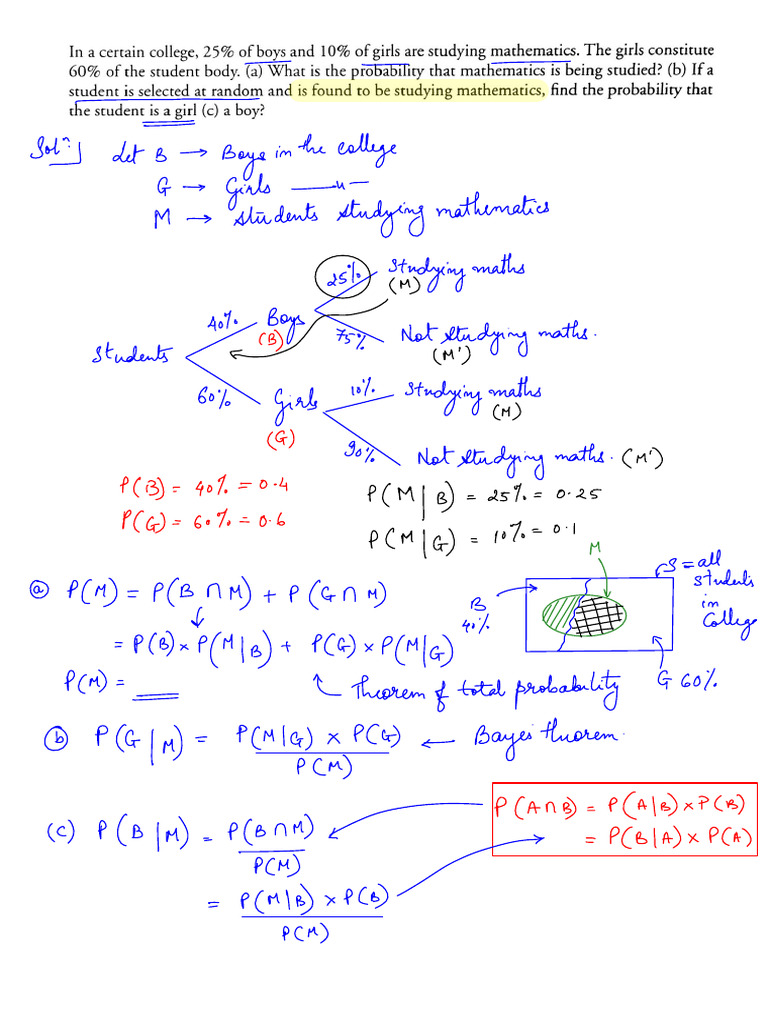 In a certain college, 25% of boys and 10% of girls are studying mathematics. The girls constitute
60% of the student body. (a) What is the probability that mathematics is being studied? (b) If a
student is selected at random and is found to be studying mathematics, find the probability that
the student is a girl (c) a boy?
Solⁿ: Let B → Boys in the college
G → Girls —〃—
M → Students studying mathematics
25% Studying maths
(M)
40% Boys
(B)
75% Not studying maths.
(M')
Students
60% Girls
(G)
10% Studying maths
(M)
90% Not studying maths. (M')
P(B) = 40% = 0.4
P(G) = 60% = 0.6
P(M|B) = 25% = 0.25
P(M|G) = 10% = 0.1
(a) P(M) = P(B∩M) + P(G∩M)
= P(B) × P(M|B) + P(G) × P(M|G)
P(M) =
Theorem of total probability
M
S = all
students
in
College
B
40%
G 60%
(b) P(G|M) = P(M|G) × P(G) / P(M) ← Bayes theorem.
(c) P(B|M) = P(B∩M) / P(M)
= P(M|B) × P(B) / P(M)
P(A∩B) = P(A|B) × P(B)
= P(B|A) × P(A)